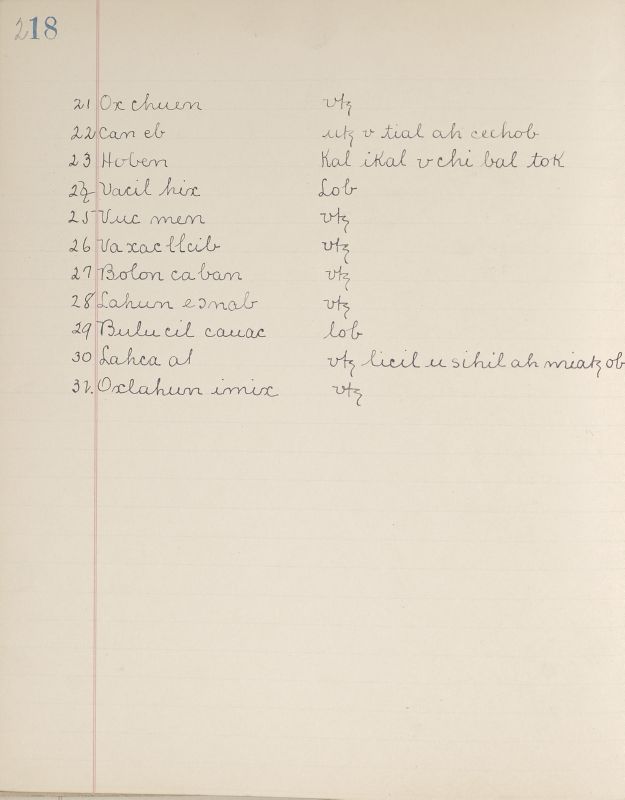 218
21 Ox chuen vtz
22 Can eb utz v tial ah cechob
23 Hoben Kal iKal v chi bal toK
Vacil hix Lob
25 Vuc men vtz
26 Vaxac llcib vtz
27 Bolon caban vtz
28 Lahun esnab vtz
29 Bulucil cauac lob
30 Lahca al vtz licil u sihil ah miatz ob
31. Oxlahun imix vtz